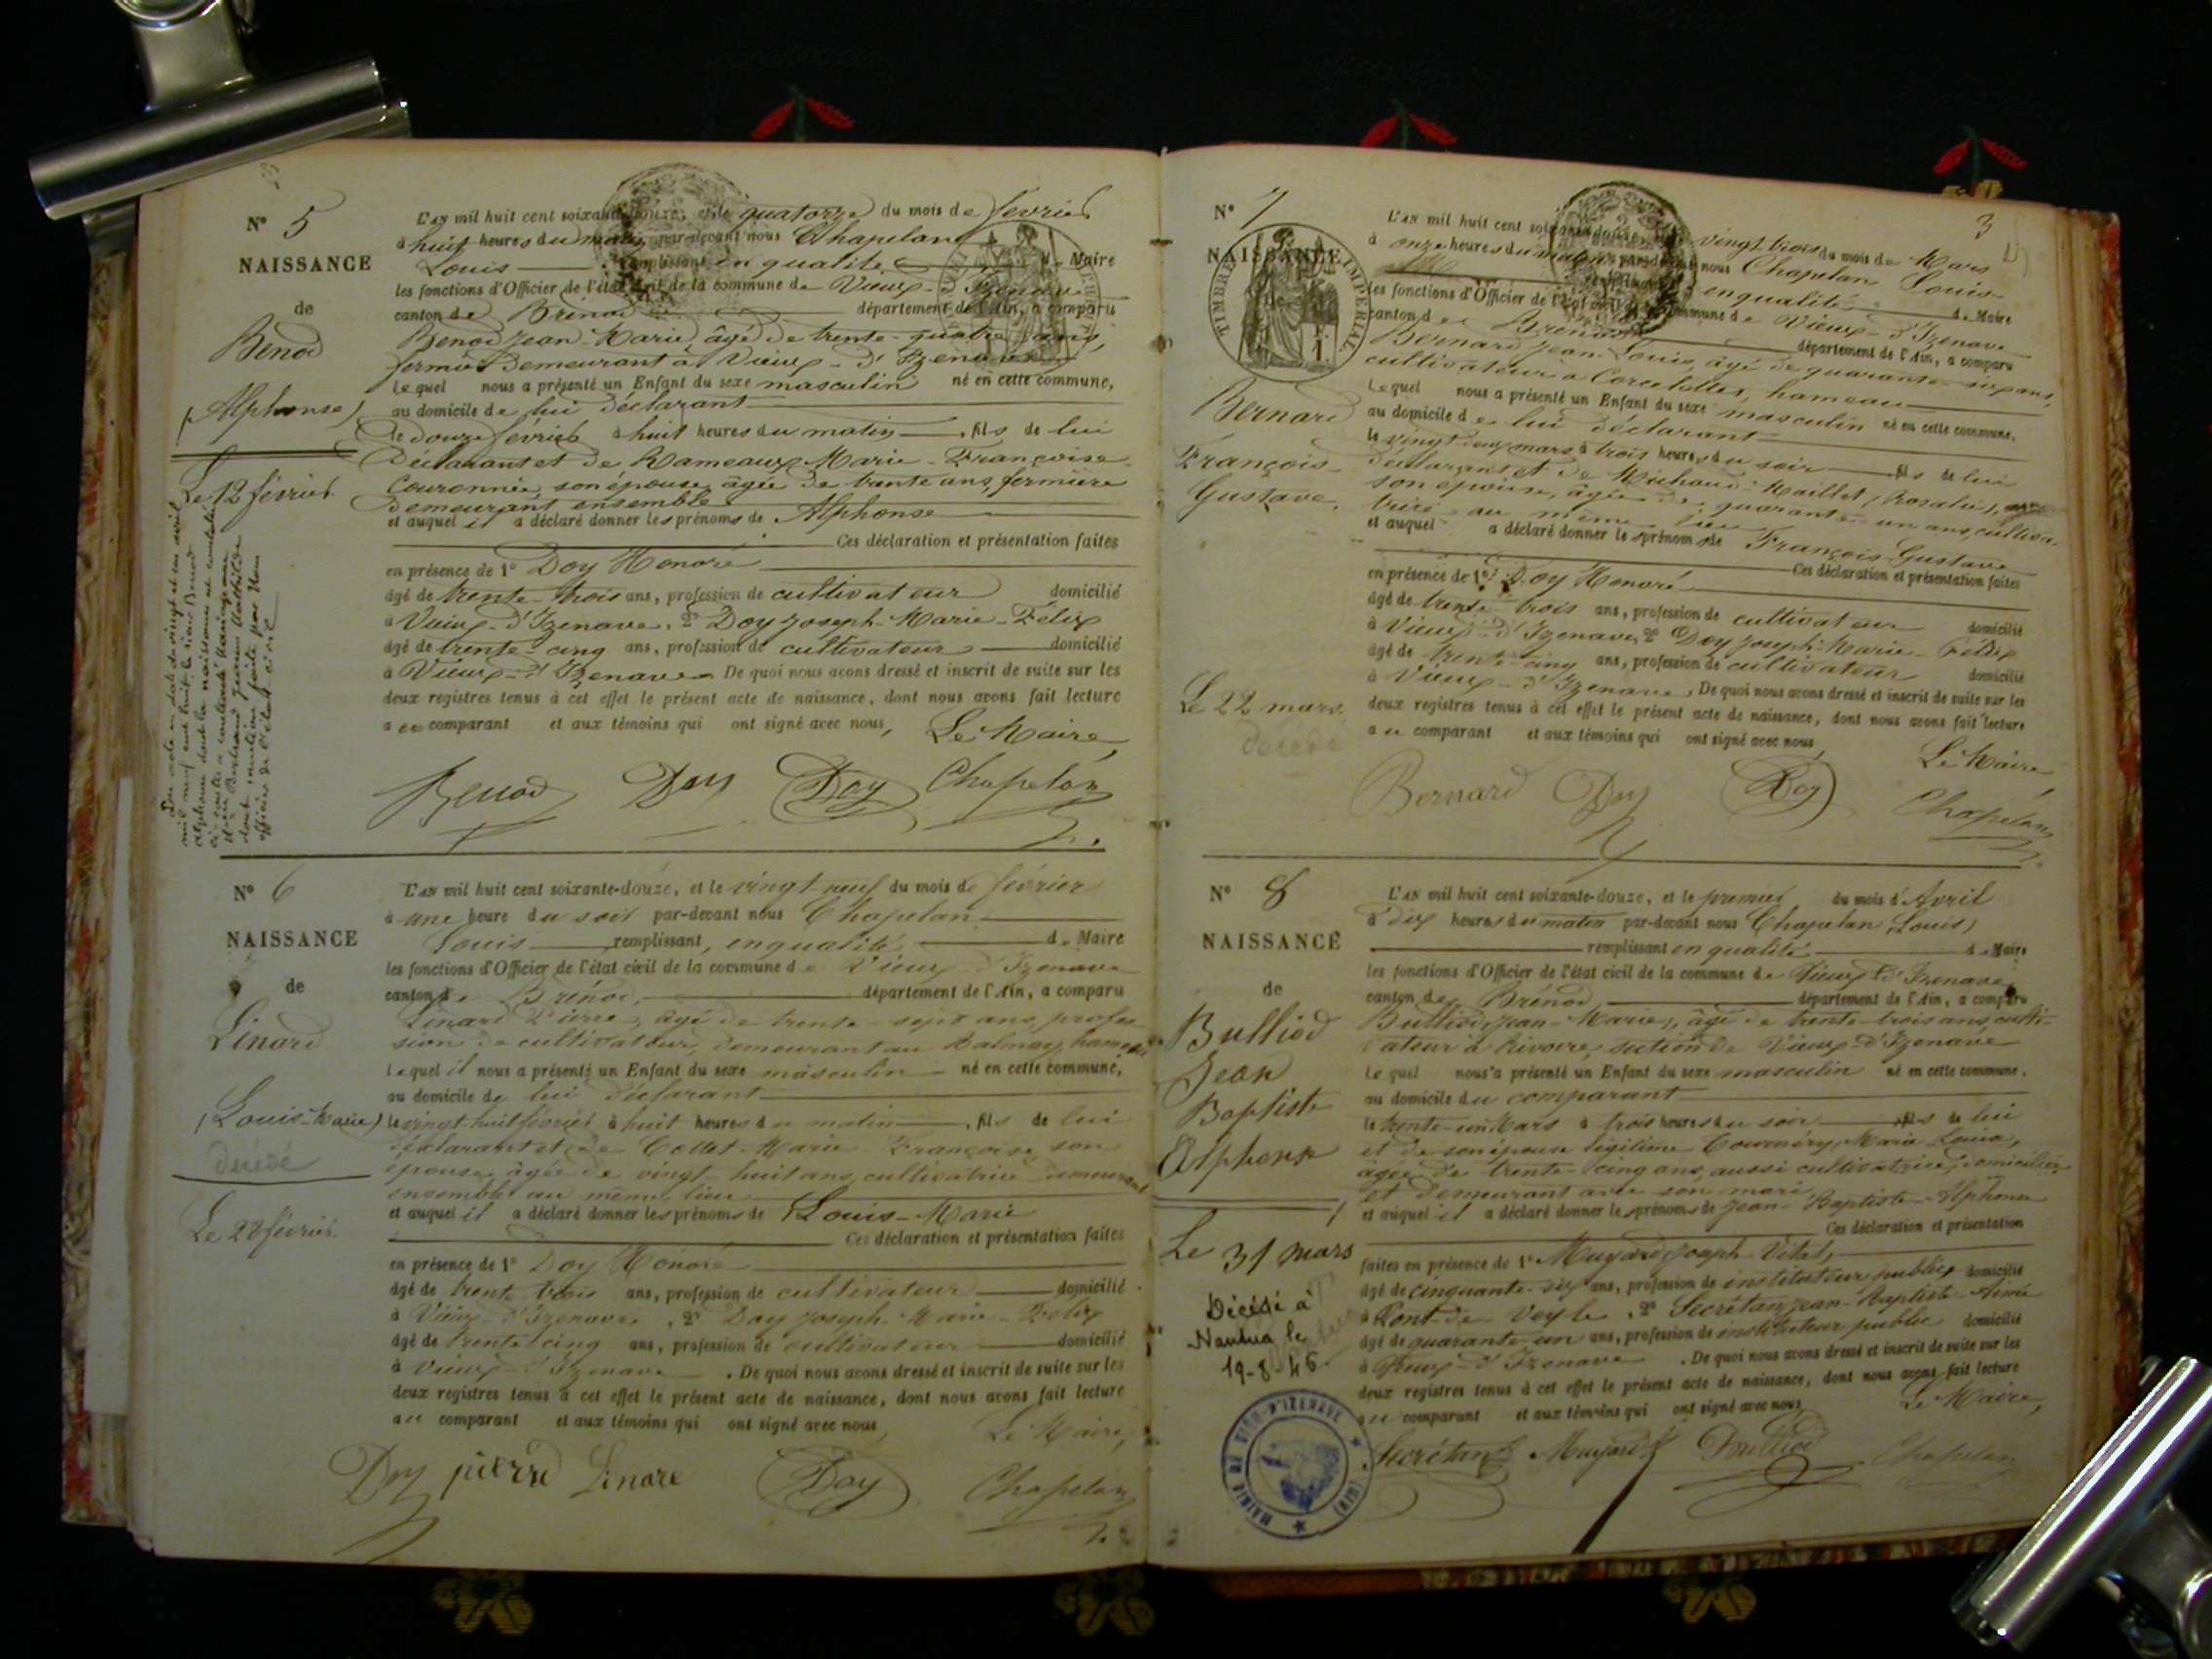 N° 5
NAISSANCE
de
Benod
(Alphonse)
Le 12 février
L'AN mil huit cent soixante-douze, et le quatorze du mois de février
à huit heures du matin par-devant nous Chapelan
Louis remplissant en qualité de Maire
les fonctions d'Officier de l'état civil de la commune de Vieux-d'Izenave
canton de Brénod département de l'Ain, a comparu
Benod Jean-Marie, âgé de trente-quatre ans,
fermier demeurant à Vieux-d'Izenave
lequel nous a présenté un Enfant du sexe masculin né en cette commune,
au domicile de lui déclarant
le douze février à huit heures du matin, fils de lui
déclarant et de Rameaux Marie-Françoise
Couronnée, son épouse, âgée de trente ans, fermière
demeurant ensemble
et auquel il a déclaré donner les prénoms de Alphonse
Ces déclaration et présentation faites
en présence de 1° Doy Honoré
âgé de trente-trois ans, profession de cultivateur domicilié
à Vieux-d'Izenave, 2° Doy Joseph-Marie-Félix
âgé de trente-cinq ans, profession de cultivateur domicilié
à Vieux-d'Izenave De quoi nous avons dressé et inscrit de suite sur les
deux registres tenus à cet effet le présent acte de naissance, dont nous avons fait lecture
au comparant et aux témoins qui ont signé avec nous, Le Maire,
Benod Doy Doy Chapelan
N° 6
NAISSANCE
de
Linard
(Louis-Marie)
décédé
Le 28 février
L'AN mil huit cent soixante-douze, et le vingt neuf du mois de février
à une heure du soir par-devant nous Chapelan
Louis remplissant, en qualité de Maire
les fonctions d'Officier de l'état civil de la commune de Vieux d'Izenave
canton de Brénod, département de l'Ain, a comparu
Linard Pierre, âgé de trente-sept ans, profes-
sion de cultivateur, demeurant au Balmay, hameau
lequel il nous a présenté un Enfant du sexe masculin né en cette commune,
au domicile de lui déclarant
le vingt huit février à huit heures du matin, fils de lui
déclarant et de Collet Marie Françoise son
épouse, âgée de vingt-huit ans, cultivatrice demeurant
ensemble au même lieu
et auquel il a déclaré donner les prénoms de Louis-Marie
Ces déclaration et présentation faites
en présence de 1° Doy Honoré
âgé de trente trois ans, profession de cultivateur domicilié
à Vieux-d'Izenave, 2° Doy Joseph-Marie-Félix
âgé de trente cinq ans, profession de cultivateur domicilié
à Vieux-d'Izenave. De quoi nous avons dressé et inscrit de suite sur les
deux registres tenus à cet effet le présent acte de naissance, dont nous avons fait lecture
au comparant et aux témoins qui ont signé avec nous, Le Maire,
Doy pierre Linare Doy Chapelan
3
N° 7
NAISSANCE
de
TIMBRE IMPERIAL
Bernard
François-
Gustave
Le 22 mars
décédé
L'AN mil huit cent soixante-douze vingt trois du mois de Mars
à onze heures du matin par-devant nous Chapelan Louis
en qualité de Maire
les fonctions d'Officier de l'état civil de la commune de Vieux-d'Izenave
canton de Brénod département de l'Ain, a comparu
Bernard Jean-Louis, âgé de quarante-six ans,
cultivateur à Corcelettes, hameau
lequel nous a présenté un Enfant du sexe masculin né en cette commune,
au domicile de lui déclarant
le vingt deux mars à trois heures du soir fils de lui
déclarant et de Michaud-Maillet (Rosalie),
son épouse, âgée de quarante-un ans, cultiva-
trice au même lieu
et auquel a déclaré donner les prénoms de François-Gustave
Ces déclaration et présentation faites
en présence de 1° Doy Honoré
âgé de trente-trois ans, profession de cultivateur domicilié
à Vieux-d'Izenave, 2° Doy Joseph-Marie-Félix
âgé de trente-cinq ans, profession de cultivateur domicilié
à Vieux-d'Izenave. De quoi nous avons dressé et inscrit de suite sur les
deux registres tenus à cet effet le présent acte de naissance, dont nous avons fait lecture
au comparant et aux témoins qui ont signé avec nous,
Le Maire,
Bernard Doy Doy Chapelan
N° 8
NAISSANCE
de
Bulliod
Jean
Baptiste
Alphonse
Le 31 mars
Décédé à
Nantua le
19-8-46
MAIRIE DE VIEU-D'IZENAVE (AIN)
L'AN mil huit cent soixante-douze, et le premier du mois d'Avril
à dix heures du matin par-devant nous Chapelan (Louis)
remplissant en qualité de Maire
les fonctions d'Officier de l'état civil de la commune de Vieux-d'Izenave
canton de Brénod département de l'Ain, a comparu
Bulliod (Jean-Marie), âgé de trente-trois ans, culti-
vateur à Rivoire, section de Vieux-d'Izenave
lequel nous a présenté un Enfant du sexe masculin né en cette commune,
au domicile du comparant
le trente-un Mars à trois heures du soir fils de lui
et de son épouse légitime Marie Louise,
âgée de trente-cinq ans, aussi cultivatrice, domiciliée
et demeurant avec son mari
et auquel il a déclaré donner les prénoms de Jean-Baptiste-Alphonse
Ces déclaration et présentation
faites en présence de 1° Muyard Joseph Vital,
âgé de cinquante-six ans, profession de instituteur public, domicilié
à Pont-de-Veyle, 2° Secrétan Jean-Baptiste-Aimé
âgé de quarante-un ans, profession de instituteur public domicilié
à Vieux-d'Izenave. De quoi nous avons dressé et inscrit de suite sur les
deux registres tenus à cet effet le présent acte de naissance, dont nous avons fait lecture
au comparant et aux témoins qui ont signé avec nous, Le Maire,
Secrétan Muyard Bulliod Chapelan